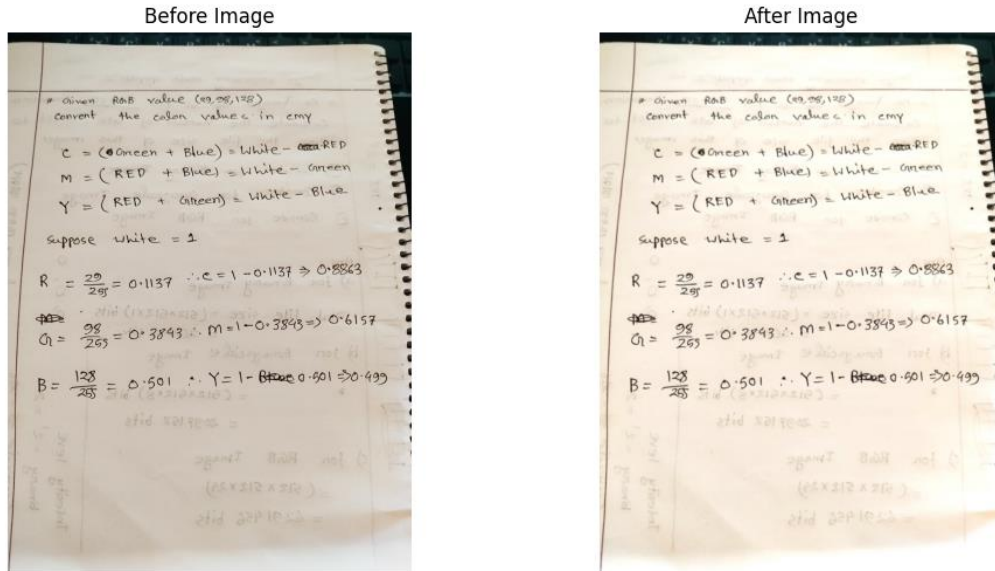 Before Image
* Given RGB value (29,98,128)
convent the colon values in cmy
C = (Green + Blue) = White - RED
M = (RED + Blue) = White - Green
Y = (RED + Green) = White - Blue
Suppose white = 1
R = 29/255 = 0.1137 ∴ C = 1 - 0.1137 ⇒ 0.8863
G = 98/255 = 0.3843 ∴ M = 1 - 0.3843 ⇒ 0.6157
B = 128/255 = 0.501 ∴ Y = 1 - 0.501 ⇒ 0.499
After Image
* Given RGB value (29,98,128)
convent the colon values in cmy
C = (Green + Blue) = White - RED
M = (RED + Blue) = White - Green
Y = (RED + Green) = White - Blue
Suppose white = 1
R = 29/255 = 0.1137 ∴ C = 1 - 0.1137 ⇒ 0.8863
G = 98/255 = 0.3843 ∴ M = 1 - 0.3843 ⇒ 0.6157
B = 128/255 = 0.501 ∴ Y = 1 - 0.501 ⇒ 0.499